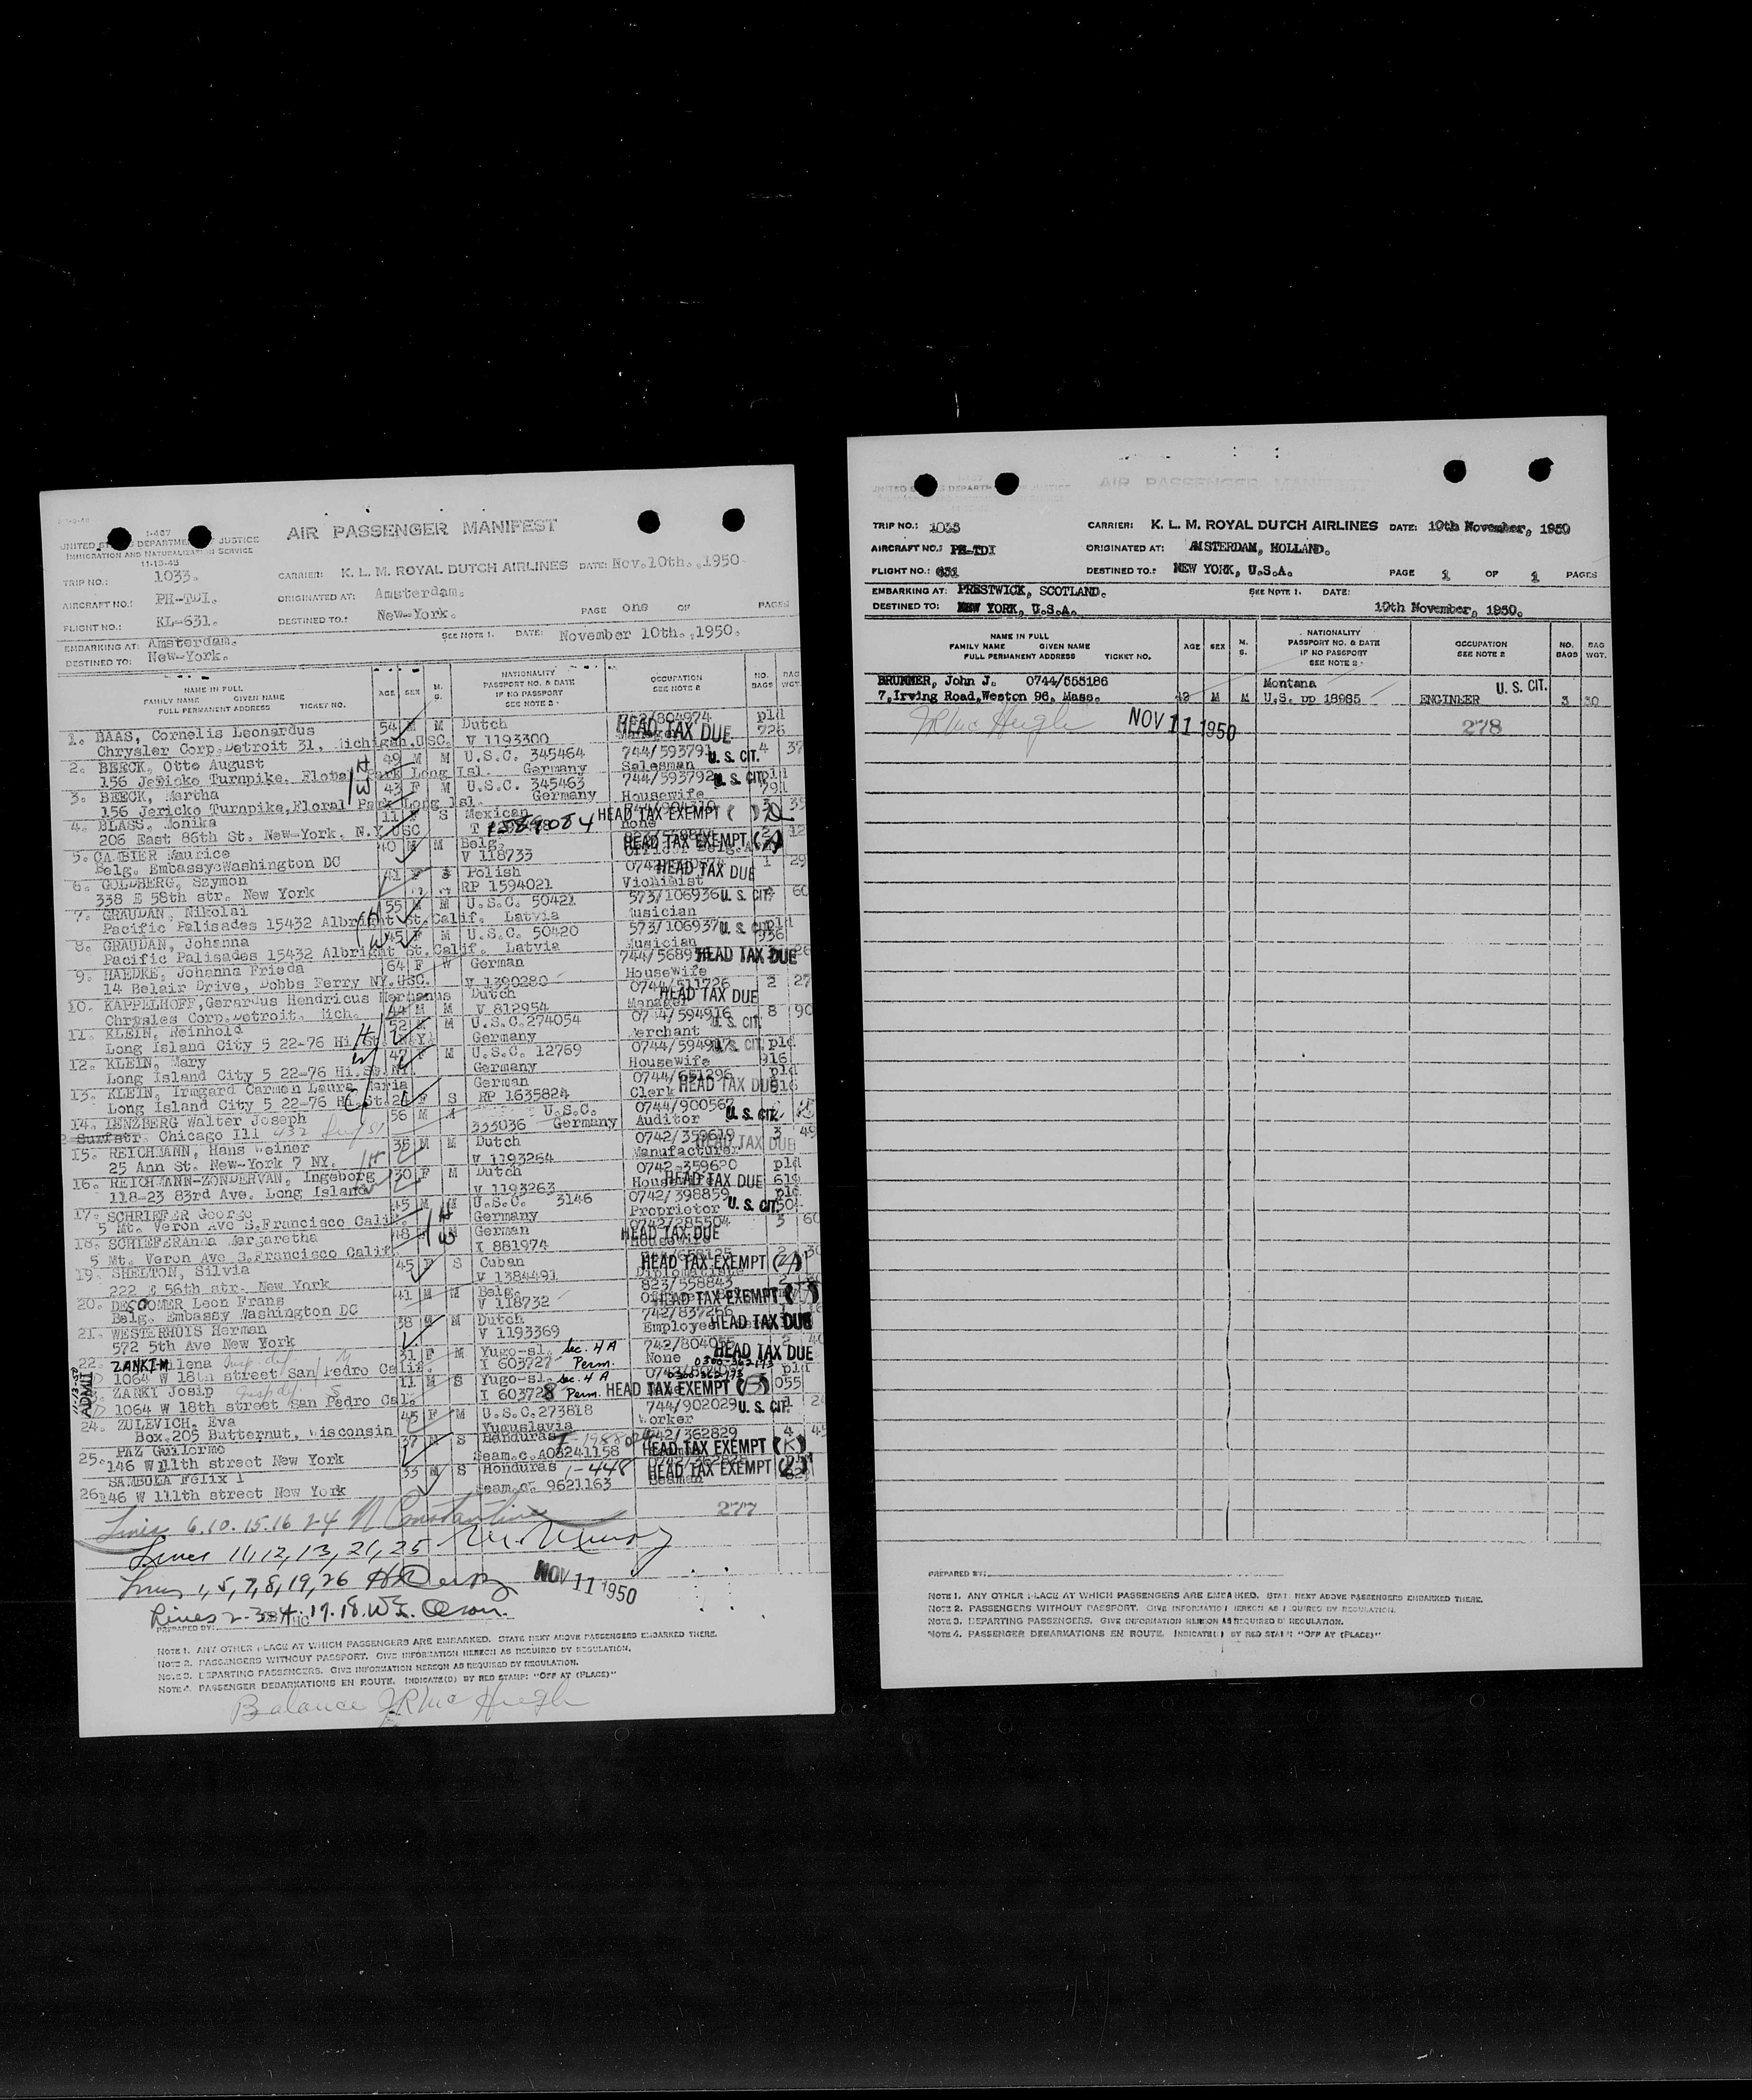 I-467
UNITED STATES DEPARTMENT OF JUSTICE
IMMIGRATION AND NATURALIZATION SERVICE
11-13-48
AIR PASSENGER MANIFEST
TRIP NO.: 1033.
CARRIER: K. L. M. ROYAL DUTCH AIRLINES DATE: Nov.10th.,1950.
AIRCRAFT NO.: PH-TDI.
ORIGINATED AT: Amsterdam.
FLIGHT NO.: KL-631.
DESTINED TO: New-York.
PAGE one OF PAGES
EMBARKING AT: Amsterdam.
SEE NOTE 1. DATE: November 10th.,1950.
DESTINED TO: New-York.
NAME IN FULL
FAMILY NAME GIVEN NAME
FULL PERMANENT ADDRESS TICKET NO.
AGE SEX M. S.
NATIONALITY
PASSPORT NO. & DATE
IF NO PASSPORT
SEE NOTE 2
OCCUPATION
SEE NOTE 2
NO. BAGS
BAG WGT.
1. BAAS, Cornelis Leonardus 54 M M Dutch 742/804974 pld
Chrysler Corp.Detroit 31, Michigan.USC. V 1193300 HEAD TAX DUE 726
2. BEECK, Otto August H 49 M M U.S.C. 345464 744/593791 U. S. CIT. 4 37
156 Jericko Turnpike, Floral Park Long Isl. Germany Salesman
3. BEECK, Martha W 43 F M U.S.C. 345463 744/593792 U. S. CIT. pld
156 Jericko Turnpike,Floral Park Long Isl. Germany Housewife 791
4. BLASS, Monika 11 F S Mexican HEAD TAX EXEMPT 3 35
206 East 86th St. New-York, N.Y USC 1589084 None
5. CAMBIER Maurice 40 M M Belg. HEAD TAX EXEMPT 2 12
Belg. Embassy Washington DC V 118733
6. GOLDBERG, Szymon 41 Polish HEAD TAX DUE 1 29
338 E 58th str. New York RP 1594021 Violinist
7. GRAUDAN, Nikolai H 55 M M U.S.C. 50421 573/106936 U. S. CIT. 60
Pacific Palisades 15432 Albright St.Calif. Latvia Musician
8. GRAUDAN, Johanna W 45 F M U.S.C. 50420 573/106937 U. S. CIT. pld
Pacific Palisades 15432 Albright St.Calif. Latvia Musician 936
9. HAEDKE, Johanna Frieda 64 F W German HEAD TAX DUE 26
14 Belair Drive, Dobbs Ferry NY.USC. V 1390280 Housewife
10. KAPPELHOFF,Gerardus Hendricus Hermanus Dutch 0744/511726 2 27
Chrysles Corp.Detroit. Mich. 44 M M V 812954 Manager HEAD TAX DUE
11. KLEIN, Reinhold H 52 M M U.S.C.274054 0744/594916 U. S. CIT. 8 90
Long Island City 5 22-76 Hi.St. N.Y. Germany Merchant
12. KLEIN, Mary W 47 F M U.S.C. 12769 0744/594917 U. S. CIT. pld
Long Island City 5 22-76 Hi.St.NY. Germany Housewife 916
13. KLEIN, Irmgard Carmen Laura Maria German 0744/651296 pld
Long Island City 5 22-76 Hi.St. 21 F S RP 1635824 Clerk HEAD TAX DUE 916
14. LENZBERG Walter Joseph 56 M M U.S.C. 0744/900567 U. S. CIT.
Surfstr. Chicago Ill 333036 Germany Auditor
15. REICHMANN, Hans Weiner 35 M M Dutch 0742/359619 3 49
25 Ann St. New-York 7 NY. H V 1193264 Manufacturer HEAD TAX DUE
16. REICHMANN-ZONDERVAN, Ingeborg 30 F M Dutch 0742-359620 pld
118-23 83rd Ave. Long Island W V 1193263 HEAD TAX DUE 619
17. SCHRIEFER George 45 M M U.S.C. 3146 0742/398859 pld
5 Mt. Veron Ave S.Francisco Calif. H Germany Proprietor U. S. CIT. 504
18. SCHIEFERAnna Margaretha 48 W M German 0742/285504 3 60
5 Mt. Veron Ave S.Francisco Calif. I 881974 Housewife HEAD TAX DUE
19. SHELTON, Silvia 45 F S Cuban HEAD TAX EXEMPT 2 30
222 E 56th str. New York V 1384491
20. DESCOMER Leon Frans 41 M M Belg. 823/558843 2
Belg. Embassy Washington DC V 118732 HEAD TAX EXEMPT
21. WESTERHUIS Herman 38 M M Dutch 742/837266
572 5th Ave New York V 1193369 Employee HEAD TAX DUE
22. ZANKI Milena 31 F M Yugo-sl. Sec. 4A 742/804055 2 40
1064 W 18th street San Pedro Calif. I 603727 Perm. None HEAD TAX DUE
0300-362173
ADMIT 11-13-50
ZANKI Josip 11 M S Yugo-sl. Sec. 4A pld
1064 W 18th street San Pedro Cal. I 603728 Perm. HEAD TAX EXEMPT 055
24. ZULEVICH, Eva 45 F M U.S.C.273818 744/902029 U. S. CIT.
Box.205 Butternut, Wisconsin Yuguslavia Worker
25. PAZ Guilermo 37 M S Honduras 742/362829 4 45
146 W 111th street New York Seam.c. A03241158 HEAD TAX EXEMPT (K)
26. SAMBULA Felix I 33 M S Honduras HEAD TAX EXEMPT
146 W 111th street New York Seam.c. 9621163 Seaman
277
Lines 6.10.15.16 24 N Constantine
Lines 11,12,13,21,25
Lines 1,5,7,8,19,26
NOV 11 1950
Lines 2-3-4-17-18. W. E. Olson.
PREPARED BY:
NOTE 1. ANY OTHER PLACE AT WHICH PASSENGERS ARE EMBARKED. STATE NEXT ABOVE PASSENGERS EMBARKED THERE.
NOTE 2. PASSENGERS WITHOUT PASSPORT. GIVE INFORMATION HEREON AS REQUIRED BY REGULATION.
NOTE 3. DEPARTING PASSENGERS. GIVE INFORMATION HEREON AS REQUIRED BY REGULATION.
NOTE 4. PASSENGER DEBARKATIONS EN ROUTE. INDICATE(D) BY RED STAMP: "OFF AT (PLACE)"
Balance JR McHugh
AIR PASSENGER MANIFEST
TRIP NO.: 1033
CARRIER: K. L. M. ROYAL DUTCH AIRLINES DATE: 10th November, 1950
AIRCRAFT NO.: PH-TDI
ORIGINATED AT: AMSTERDAM, HOLLAND.
FLIGHT NO.: 631
DESTINED TO: NEW YORK, U.S.A.
PAGE 1 OF 1 PAGES
EMBARKING AT: PRESTWICK, SCOTLAND.
SEE NOTE 1. DATE:
DESTINED TO: NEW YORK, U.S.A.
10th November, 1950.
NAME IN FULL
FAMILY NAME GIVEN NAME
FULL PERMANENT ADDRESS TICKET NO.
AGE SEX M. S.
NATIONALITY
PASSPORT NO. & DATE
IF NO PASSPORT
SEE NOTE 2
OCCUPATION
SEE NOTE 2
NO. BAGS
BAG WGT.
BRUMMER, John J. 0744/555186 Montana U. S. CIT.
7,Irving Road,Weston 96, Mass. 42 M M U.S. pp 18985 ENGINEER 3 30
JR McHugh NOV 11 1950 278
PREPARED BY:
NOTE 1. ANY OTHER PLACE AT WHICH PASSENGERS ARE EMBARKED. STATE NEXT ABOVE PASSENGERS EMBARKED THERE.
NOTE 2. PASSENGERS WITHOUT PASSPORT. GIVE INFORMATION HEREON AS REQUIRED BY REGULATION.
NOTE 3. DEPARTING PASSENGERS. GIVE INFORMATION HEREON AS REQUIRED BY REGULATION.
NOTE 4. PASSENGER DEBARKATIONS EN ROUTE. INDICATE(D) BY RED STAMP: "OFF AT (PLACE)"